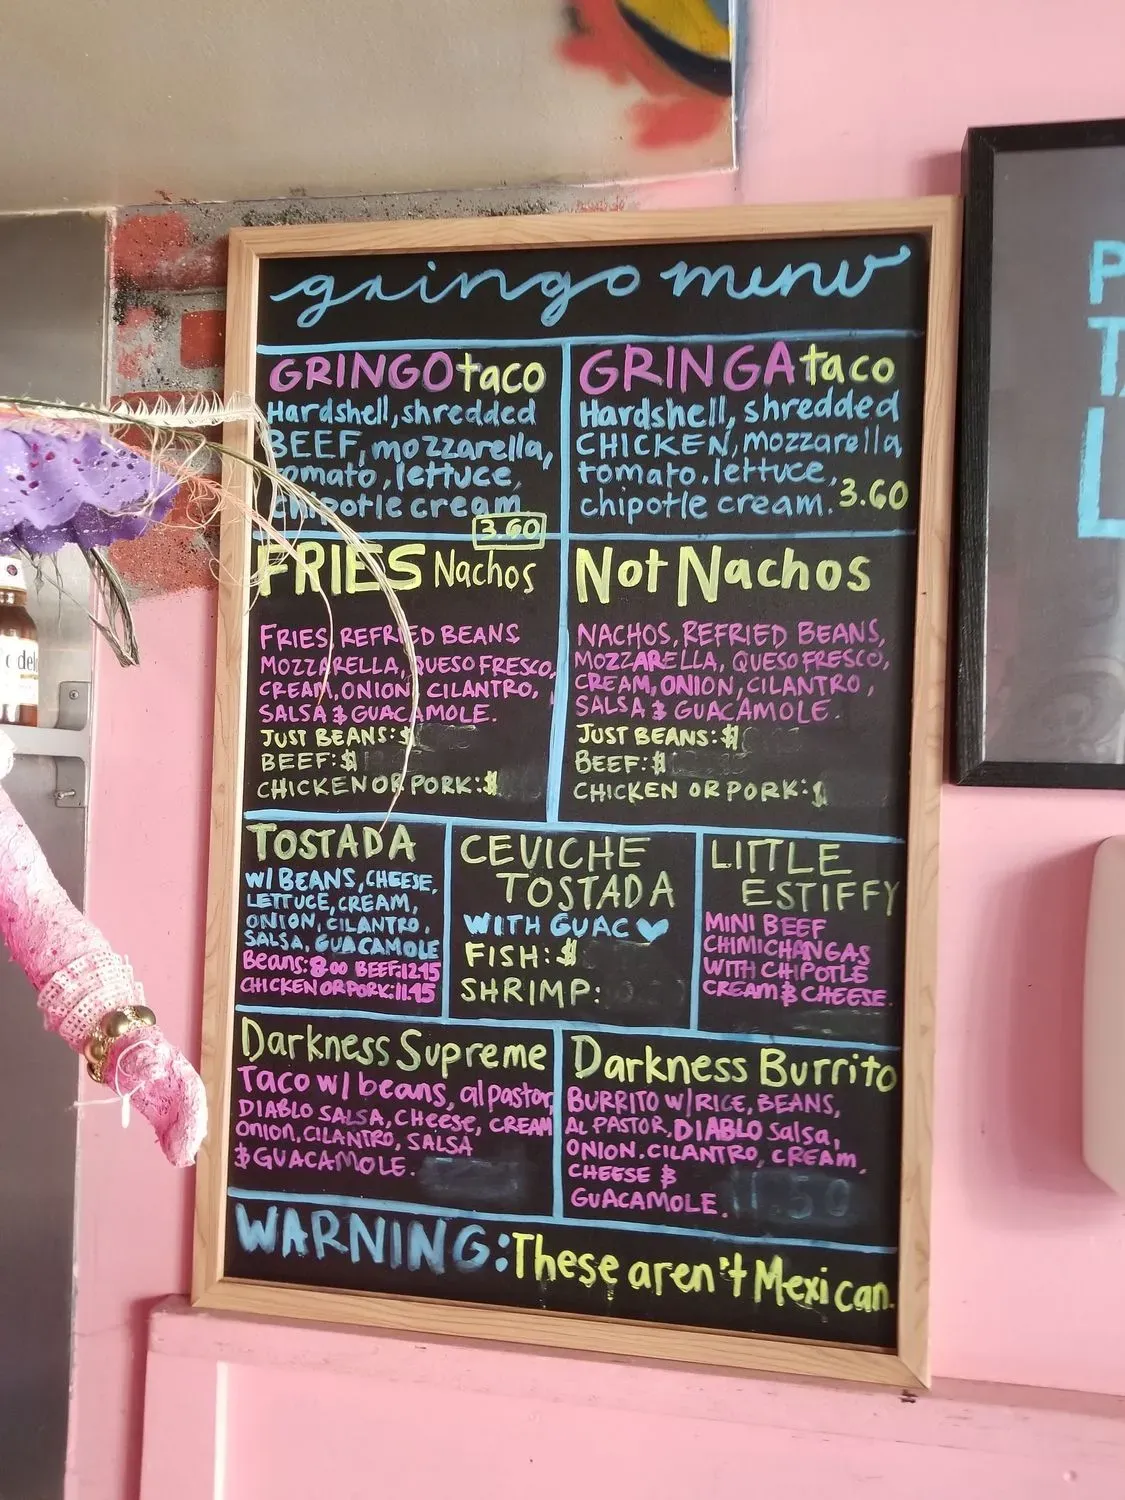 gringo menu
GRINGO taco
Hardshell, shredded
BEEF, mozzarella,
tomato, lettuce,
chipotle cream
3.60
GRINGA taco
Hardshell, shredded
CHICKEN, mozzarella,
tomato. lettuce,
chipotle cream. 3.60
FRIES Nachos
FRIES, REFRIED BEANS
MOZZARELLA, QUESO FRESCO,
CREAM, ONION, CILANTRO,
SALSA & GUACAMOLE.
JUST BEANS: $
BEEF: $
CHICKEN OR PORK: $
Not Nachos
NACHOS, REFRIED BEANS,
MOZZARELLA, QUESO FRESCO,
CREAM, ONION, CILANTRO,
SALSA & GUACAMOLE.
JUST BEANS: $
BEEF: $
CHICKEN OR PORK: $
TOSTADA
W/ BEANS, CHEESE,
LETTUCE, CREAM,
ONION, CILANTRO,
SALSA, GUACAMOLE
Beans: 8.00 BEEF: 12.45
CHICKEN OR PORK: 11.45
CEVICHE
TOSTADA
WITH GUAC
FISH: $
SHRIMP:
LITTLE
ESTIFFY
MINI BEEF
CHIMICHANGAS
WITH CHIPOTLE
CREAM & CHEESE.
Darkness Supreme
Taco w/ beans, al pastor,
DIABLO SALSA, CHEESE, CREAM
ONION, CILANTRO, SALSA
& GUACAMOLE.
Darkness Burrito
BURRITO W/ RICE, BEANS,
AL PASTOR, DIABLO Salsa,
ONION. CILANTRO, CREAM,
CHEESE &
GUACAMOLE.
WARNING: These aren't Mexican.
P
L